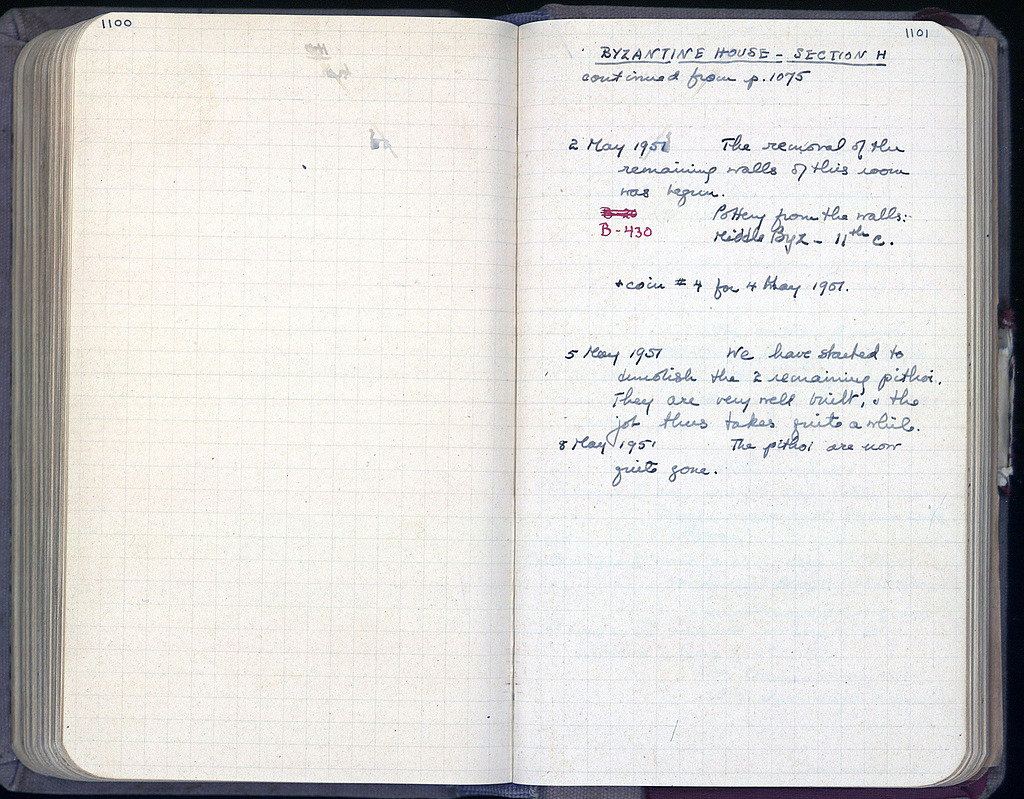 1100
1101
BYZANTINE HOUSE - SECTION H
continued from p. 1075
2 May 1951 The removal of the
remaining walls of this room
was begun.
B-430
Pottery from the walls:
Middle Byz - 11th c.
*coin #4 for 4 May 1951.
5 May 1951 We have started to
demolish the 2 remaining pithoi.
They are very well built, & the
job thus takes quite a while.
8 May 1951 The pithoi are now
quite gone.